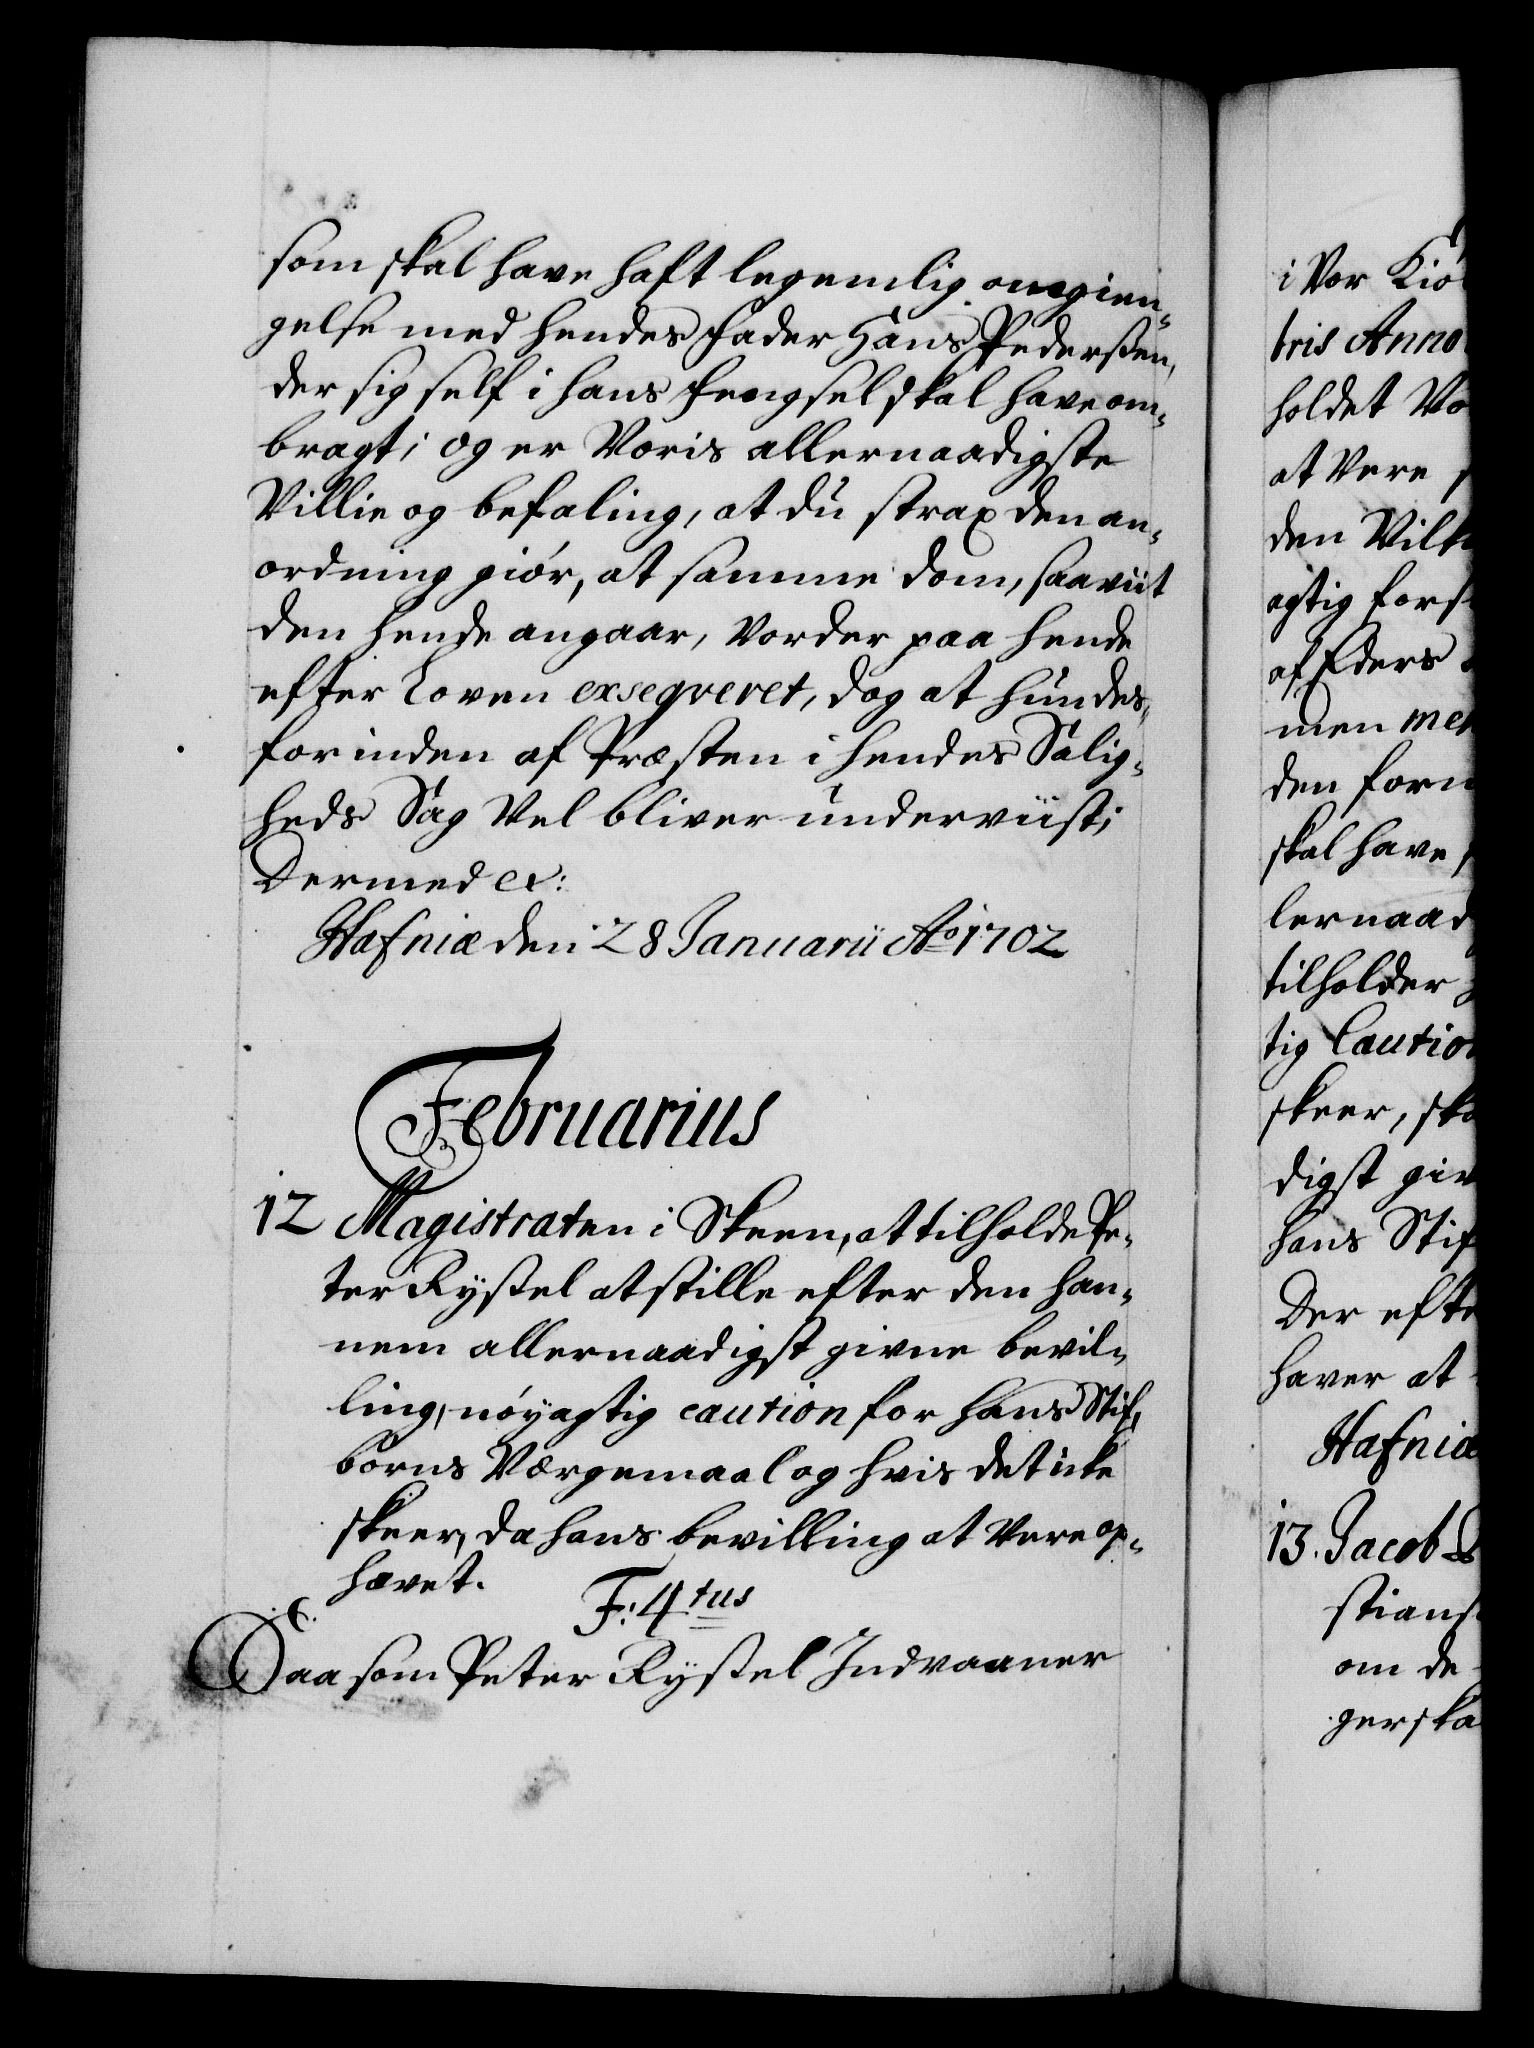 som skal have haft legemlig omgien-
gelse med hendes Fader Hans Pederssen,
der sig self i hans fengsel skal have om-
bragt; og er Voris allernaadigste
Villie og befaling, at du strax den an-
ordning giör, at samme dom, saaviit
den hende angaar, Vorder paa hende
efter Loven exseqveret, dog at hun des-
forinden af Præsten i hendes Salig-
heds Sag Vel bliver underviist;
Dermed ex:
Hafniæ den 28 Januarii Ao 1702
Februarius
12 Magistraten i Skeen, at tilholde Pe-
ter Ryssel at stille efter den han-
nem allernaadigst givne bevil-
ling, nöyagtig caution for hans Stif-
börns Værgemaal og hvis det icke
skeer, da hans bevilling at Vere op-
hævet.
F: 4tus
Saa som Peter Ryssel Indvaaner
i Vor Kiö
bris Anno
holdet Vo
at Vere
den Vilk
agtig fors
af Eders
men men
den forn
skal have
lernaad
tilholder
tig Cautio
skeer, ska
digst giv
hans Stif
Der efte
haver at
Hafniæ
13. Jacob
stians
om de
gerska